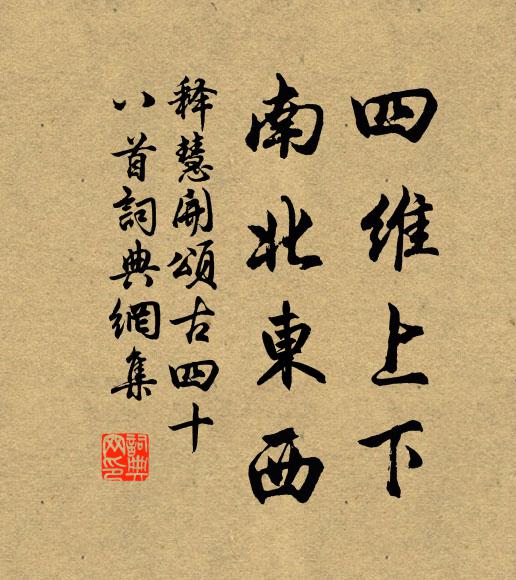 四維上下
南北東西
释慧開頌古四十
八首詞典網集
詞典网印